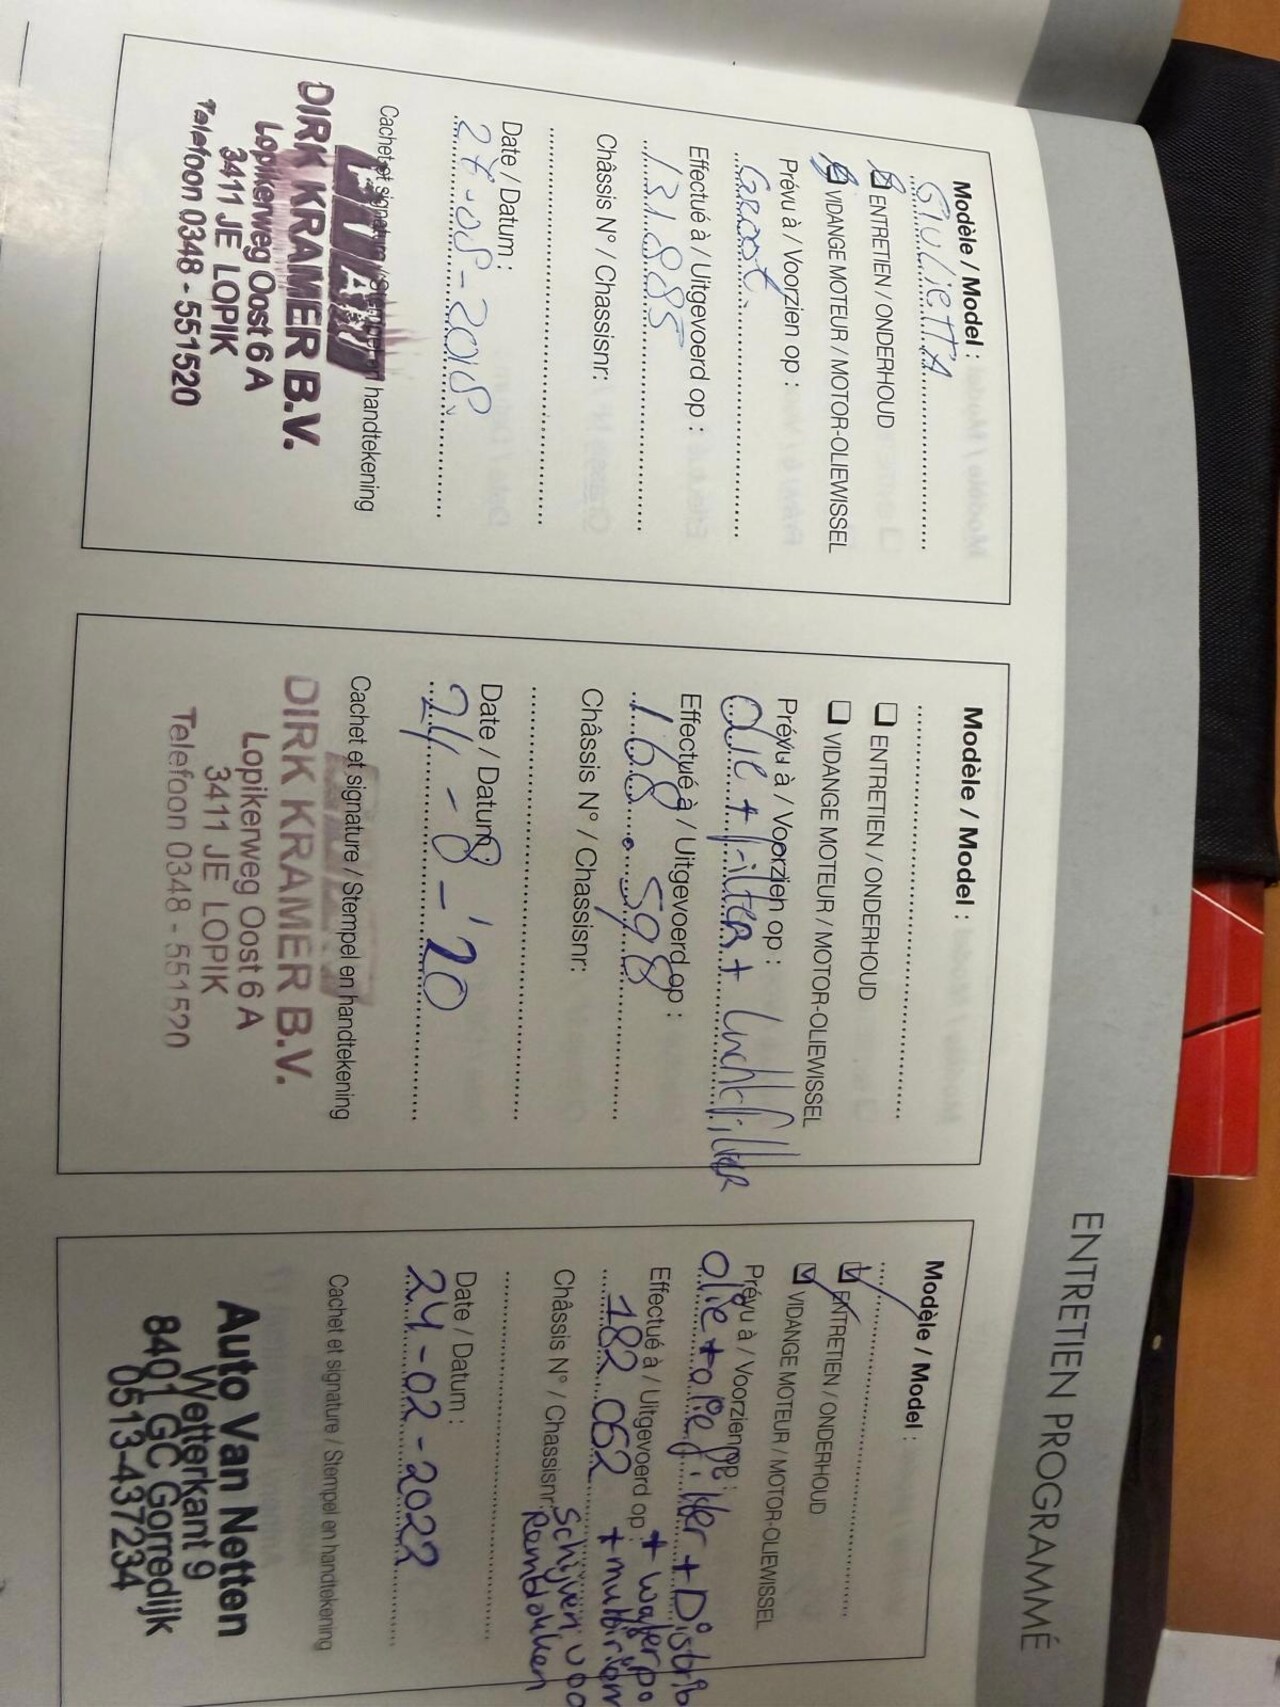 ENTRETIEN PROGRAMMÉ
Modèle / Model :
GiuliETTA
ENTRETIEN / ONDERHOUD
VIDANGE MOTEUR / MOTOR-OLIEWISSEL
Prévu à / Voorzien op :
Groot.
Effectué à / Uitgevoerd op :
131885
Châssis N° / Chassisnr:
Date / Datum :
-08-2018
Cachet et signature / Stempel en handtekening
FIAT
DIRK KRAMER B.V.
Lopikerweg Oost 6 A
3411 JE LOPIK
Telefoon 0348 - 551520
Modèle / Model :
ENTRETIEN / ONDERHOUD
VIDANGE MOTEUR / MOTOR-OLIEWISSEL
Prévu à / Voorzien op :
olie + filter + luchtfilter
Effectué à / Uitgevoerd op :
168.598
Châssis N° / Chassisnr:
Date / Datum :
24-8-'20
Cachet et signature / Stempel en handtekening
DIRK KRAMER B.V.
Lopikerweg Oost 6 A
3411 JE LOPIK
Telefoon 0348 - 551520
Modèle / Model :
ENTRETIEN / ONDERHOUD
VIDANGE MOTEUR / MOTOR-OLIEWISSEL
Prévu à / Voorzien op :
olie + oliefilter + Distrib
Effectué à / Uitgevoerd op : + waterpo
182.052 + multiriem
Châssis N° / Chassisnr: Schijven voo
Remblokken
Date / Datum :
24-02-2022
Cachet et signature / Stempel en handtekening
Auto Van Netten
Wetterkant 9
8401 GC Gorredijk
0513-437234